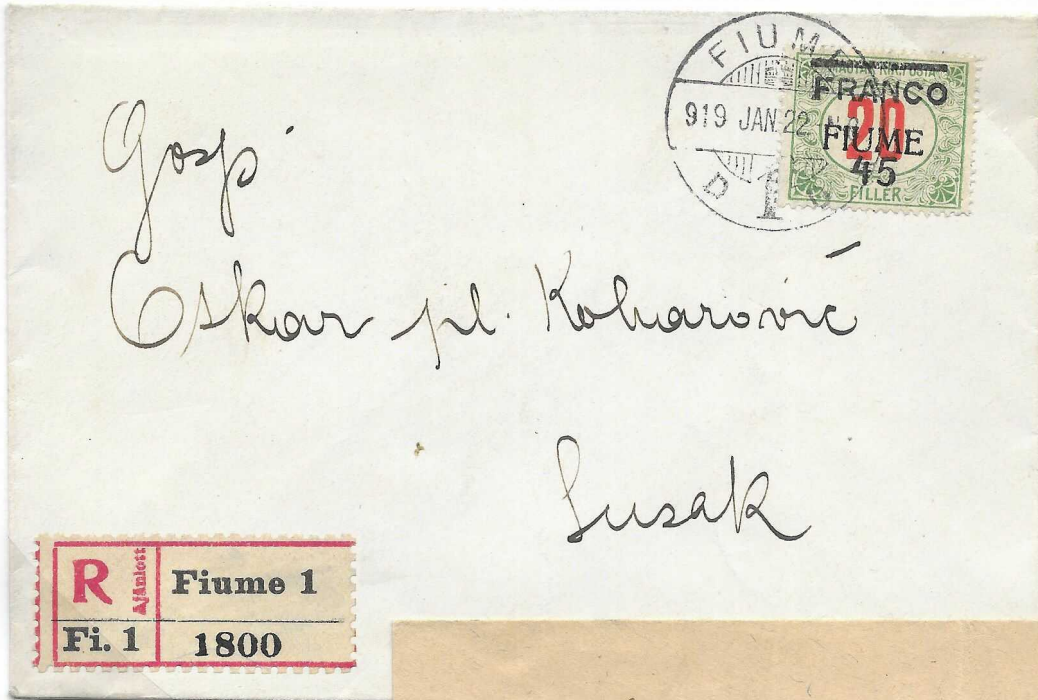 FIUME
919 JAN. 22
D
1
MAGYAR KIR. POSTA
FRANCO
20
FIUME
45
FILLER
Gosp
Oskar pl. Koharović
Susak
R Ajánlott Fiume 1
Fi. 1 1800